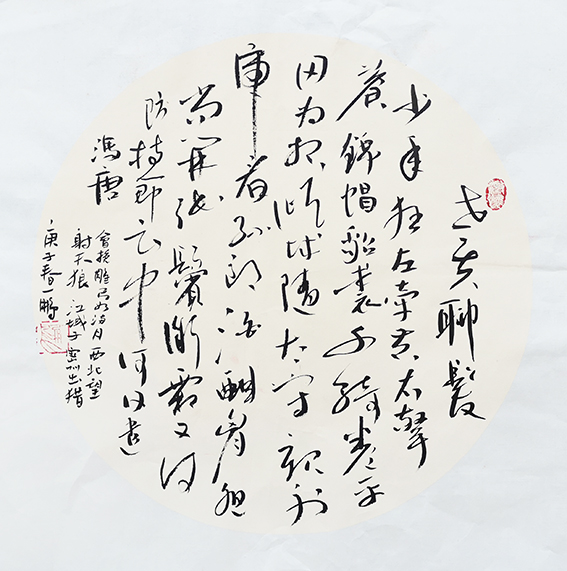 老夫聊發
少年狂左牵黄右擎
蒼錦帽貂裘千騎卷平
冈为报倾城随太守親射
虎看孙郎酒酣胸胆
尚開張鬢微霜又何
妨持節云中何日遣
馮唐
會挽雕弓如满月西北望
射天狼 江城子密州出猎
庚子春一鹏